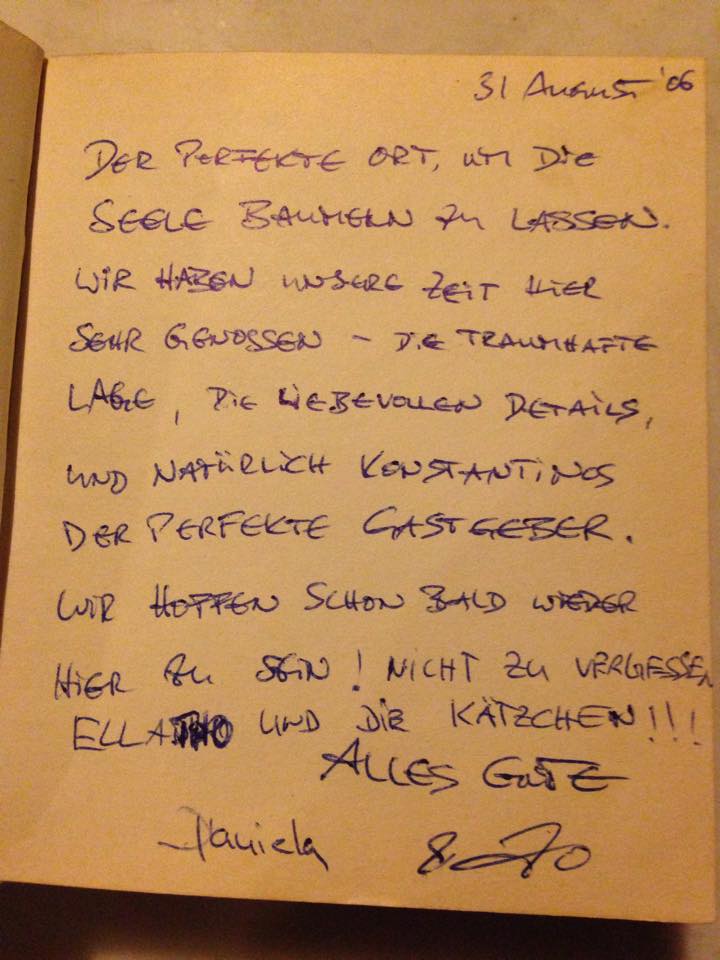 31 AUGUST '06
DER PERFEKTE ORT, UM DIE
SEELE BAUMELN ZU LASSEN.
WIR HABEN UNSERE ZEIT HIER
SEHR GENOSSEN – DIE TRAUMHAFTE
LAGE, DIE LIEBEVOLLEN DETAILS,
UND NATÜRLICH KONSTANTINOS
DER PERFEKTE GASTGEBER.
WIR HOFFEN SCHON BALD WIEDER
HIER ZU SEIN! NICHT ZU VERGESSEN
UND DIE KÄTZCHEN!!!
ALLES GUTE
Daniela